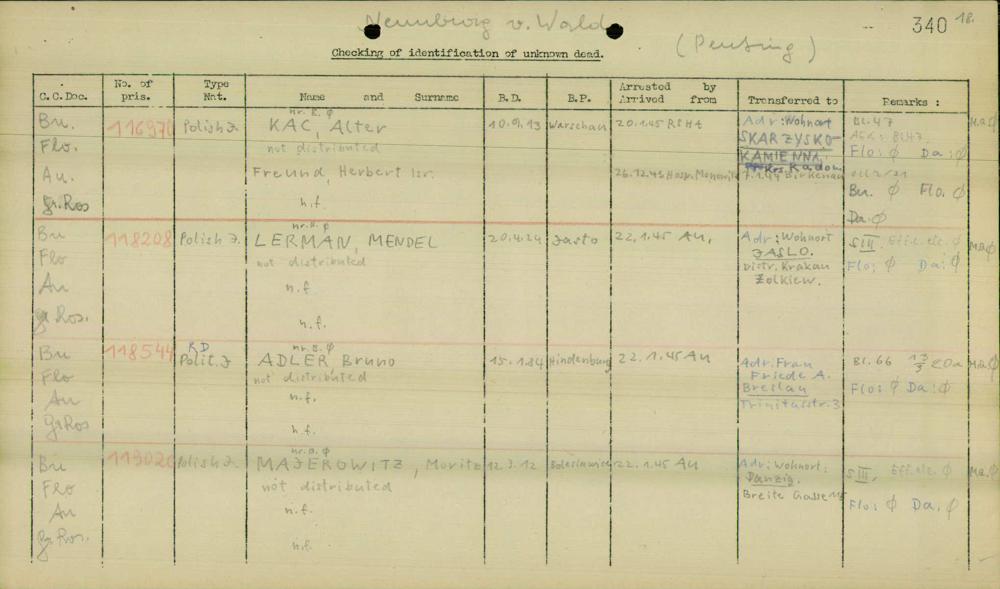 Neunburg v. Wald
340 18.
(Penting)
Checking of identification of unknown dead.
C.C.Doc. No. of pris. Type Nat. Name and Surname B.D. B.P. Arrested by Arrived from Transferred to Remarks :
nr. B. ϕ
Bu. 116970 Polish J. KAC, Alter 10.9.13 Warschau 20.1.45 RSHA Adr: Wohnort Bl. 47 Ma ϕ
Flo. not distributed SKARZYSKO- Bl. 47
KAMIENNA, Flo: ϕ Da: ϕ
Krs. Radom
Au. Freund, Herbert Isr. 26.12.43 Hosp. Monowitz 7.1.44 Birkenau
gr. Ros n.f. Bu. ϕ Flo. ϕ
Da. ϕ
nr. B. ϕ
Bu 118208 Polish J. LERMAN, MENDEL 20.4.24 Jasto 22.1.45 Au, Adr: Wohnort S III. Eff. etc. ϕ Ma ϕ
Flo not distributed JASLO. Flo: ϕ Da: ϕ
Distr. Krakau
Au n.f. Zolkiew.
gr. Ros. n.f.
nr. B. ϕ
Bu 118544 RD Polit. J ADLER, Bruno 15.1.84 Hindenburg 22.1.45 Au Adr. Frau Bl. 66 Ma ϕ
Flo not distributed Friede A. Flo: ϕ Da: ϕ
Au n.f. Breslau
Trinitasstr. 3
gr Ros n.f.
nr. B. ϕ
Bu 119020 Polish J. MAJEROWITZ, Moritz 12.3.12 22.1.45 Au Adr: Wohnort: S III. Eff. etc. ϕ Ma. ϕ
Flo not distributed Danzig.
Au n.f. Breite Gasse Flo: ϕ Da. ϕ
gr. Ros. n.f.